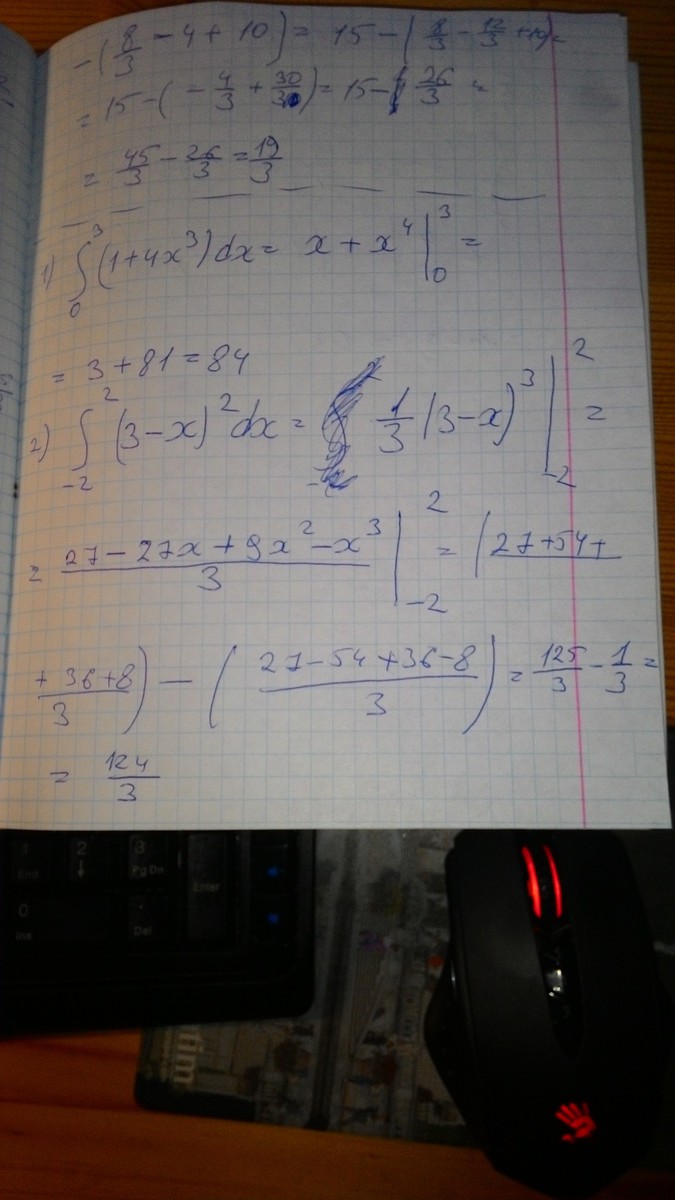 -(8/3 - 4 + 10) = 15 - (8/3 - 12/3 + 10) =
= 15 - (-4/3 + 30/3) = 15 - 26/3 =
= 45/3 - 26/3 = 19/3
1) ∫₀³ (1+4x³)dx = x + x⁴ |₀³ =
= 3 + 81 = 84
2) ∫₋₂² (3-x)² dx = 1/3 (3-x)³ |₋₂² =
= (27 - 27x + 9x² - x³)/3 |₋₂² = (27+54+
+36+8)/3) - ((27-54+36-8)/3) = 125/3 - 1/3 =
= 124/3
1 2 3
End ↓ PgDn Enter
0
Ins Del